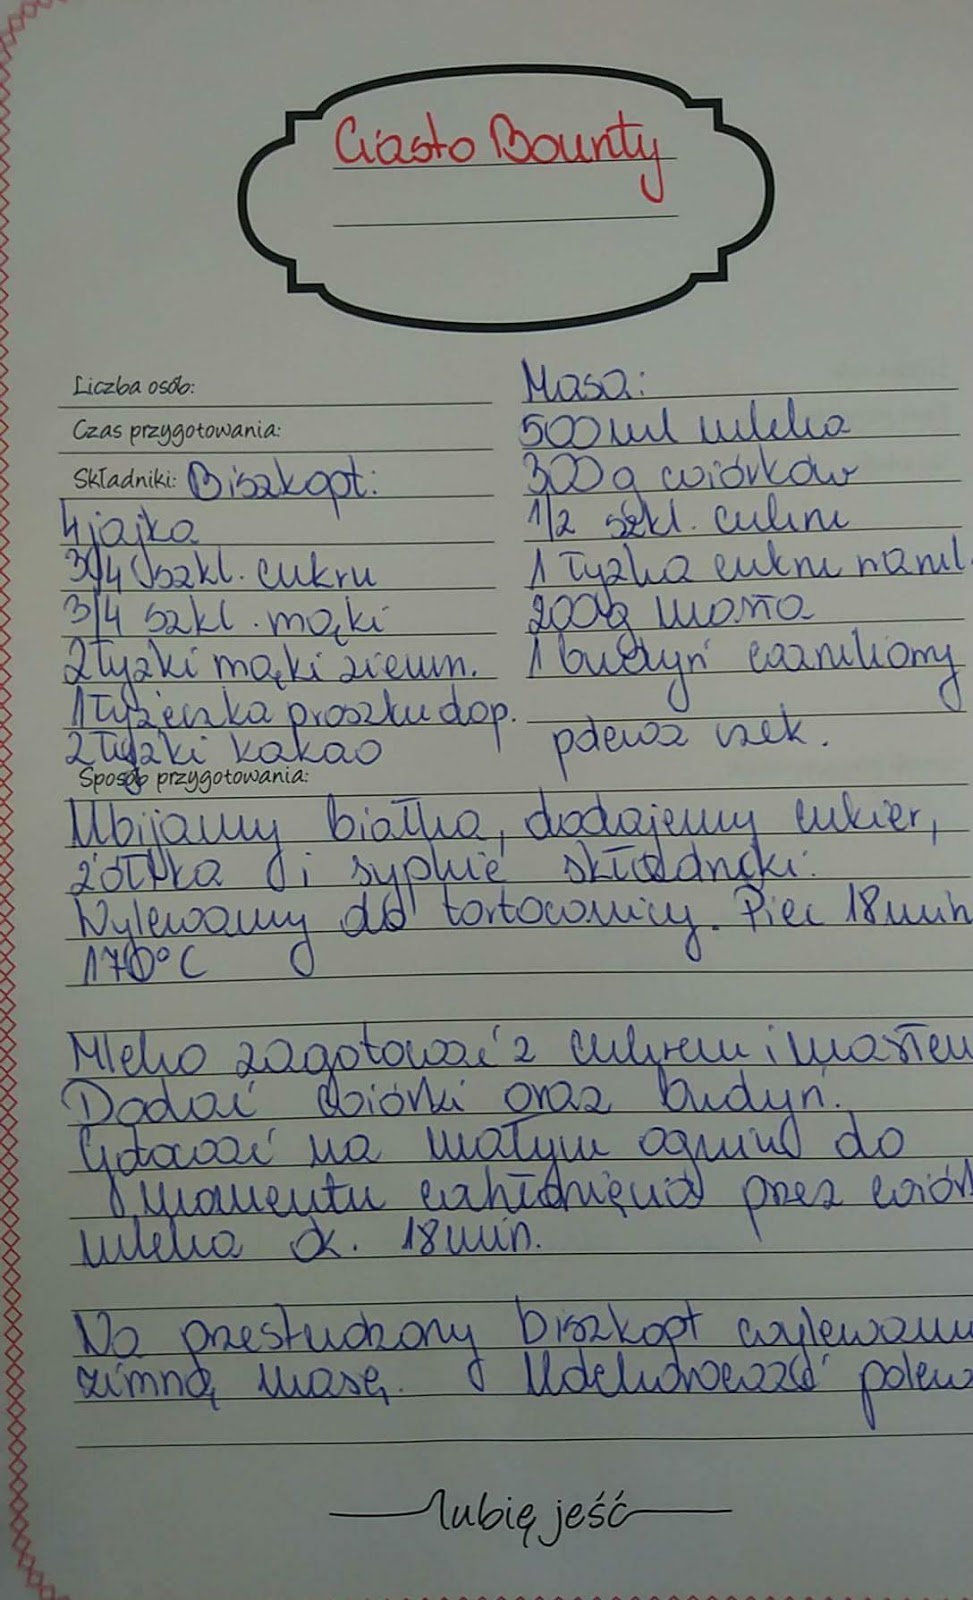 Ciasto Bounty
Liczba osób:
Czas przygotowania:
Składniki: Biszkopt:
4 jajka
3/4 szkl. cukru
3/4 szkl. mąki
2 łyżki mąki ziemn.
1 łyżeczka proszku dop.
2 łyżki kakao
Masa:
500 ml mleka
300 g wiórków
1/2 szkl. cukru
1 łyżka cukru wanil.
200g masła
1 budyń waniliowy
polewa czek.
Sposób przygotowania:
Ubijamy białka, dodajemy cukier,
żółtka i sypkie składniki.
Wylewamy do tortownicy. Piec 18 min
170°C
Mleko zagotować z cukrem i masłem
Dodać wiórki oraz budyń.
Gotować na małym ogniu do
momentu wchłonięcia przez wiórk
mleka ok. 18 min.
Na przestudzony biszkopt wylewamy
zimną masę. Udekorować polewą
lubię jeść